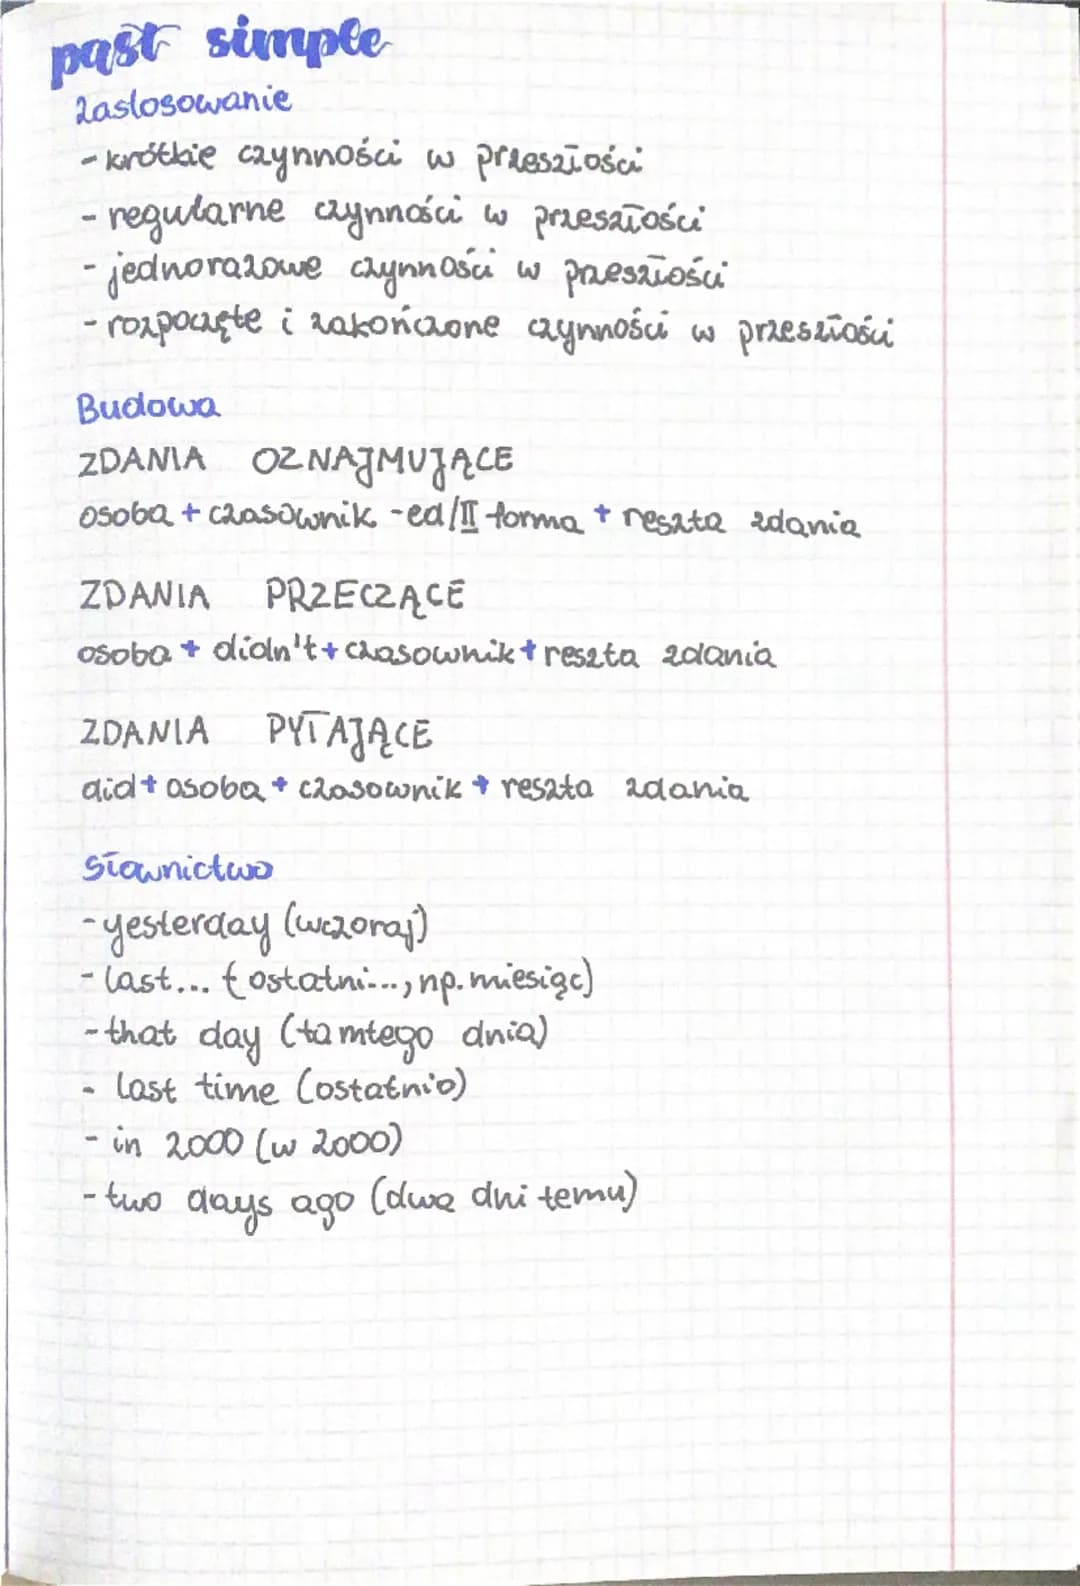 past simple
Zastosowanie
- krótkie czynności w przeszłości
- regularne czynności w przeszłości
- jednorazowe czynności w przeszłości
- rozpoczęte i zakończone czynności w przeszłości
Budowa
ZDANIA OZNAJMUJĄCE
osoba + czasownik -ed/II forma + reszta zdania
ZDANIA PRZECZĄCE
osoba + didn't + czasownik + reszta zdania
ZDANIA PYTAJĄCE
did + osoba + czasownik + reszta zdania
Słownictwo
- yesterday (wczoraj)
- last... (ostatni..., np. miesiąc)
- that day (tamtego dnia)
- last time (ostatnio)
- in 2000 (w 2000)
- two days ago (dwa dni temu)